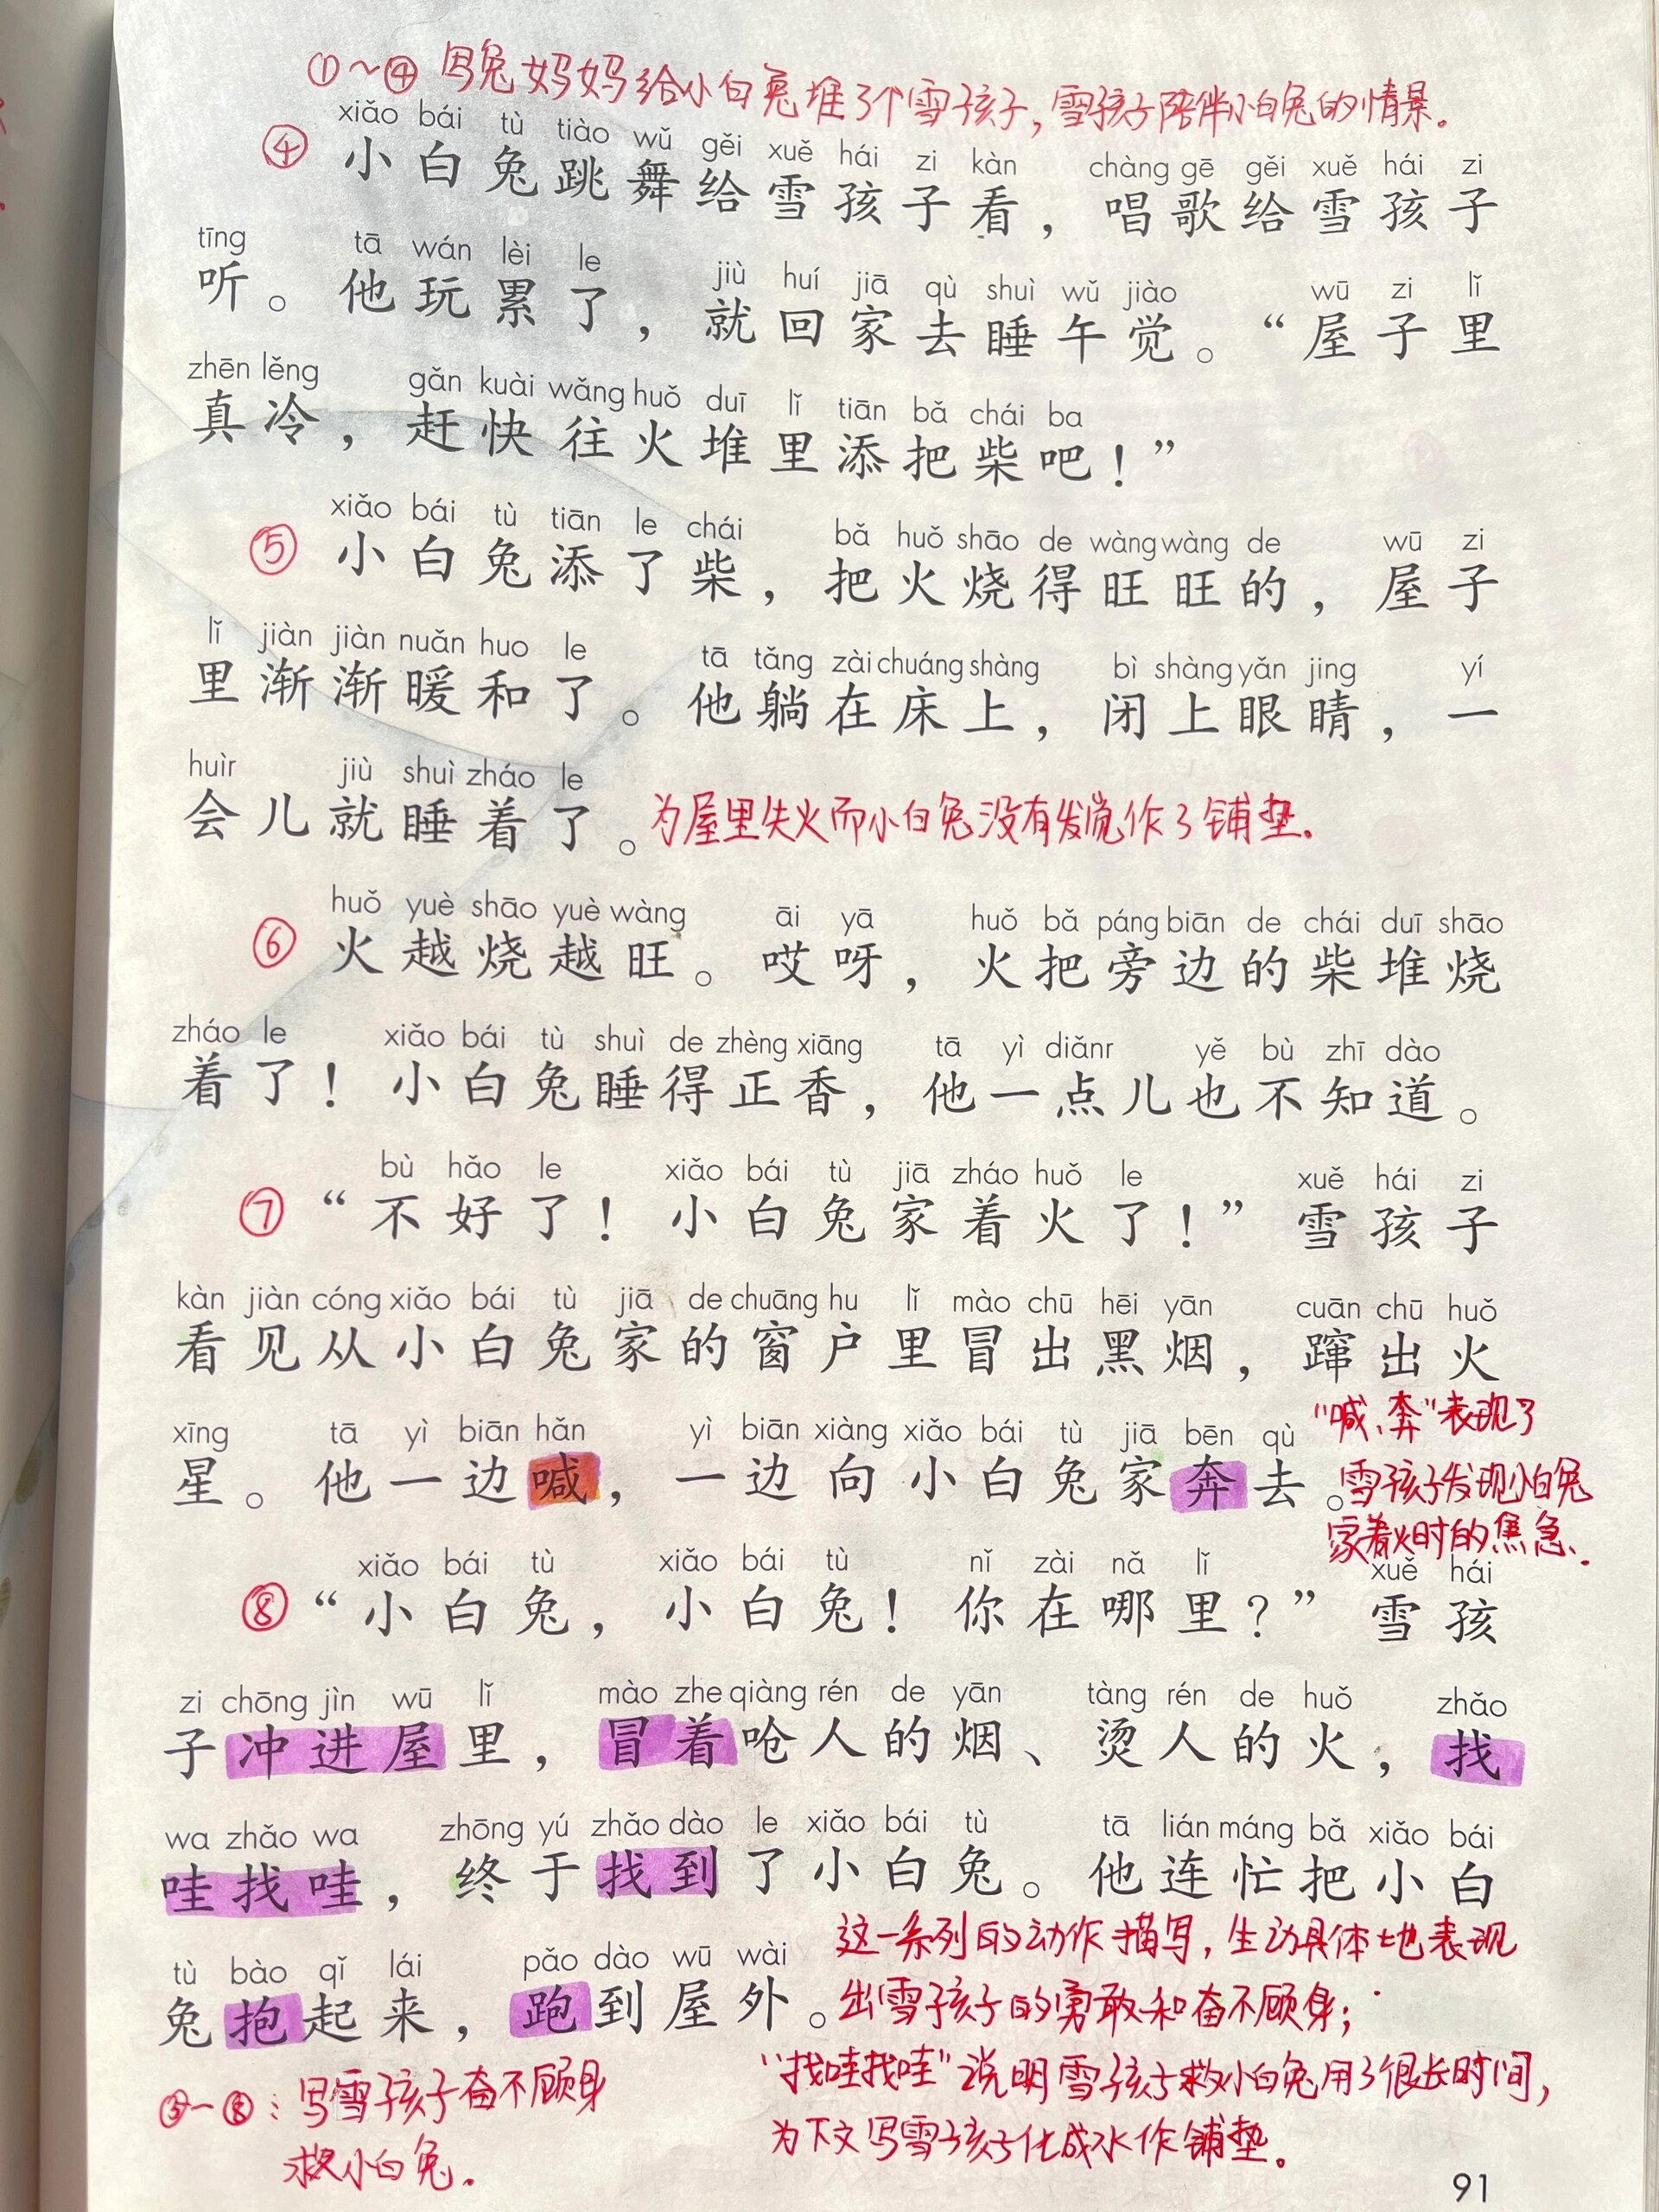 ①～④ 写兔妈妈给小白兔堆了个雪孩子，雪孩子陪伴小白兔的情景。
xiǎo bái tù tiào wǔ gěi xuě hái zi kàn chàng gē gěi xuě hái zi
④ 小白兔跳舞给雪孩子看，唱歌给雪孩子
tīng tā wán lèi le jiù huí jiā qù shuì wǔ jiào wū zi lǐ
听。他玩累了，就回家去睡午觉。“屋子里
zhēn lěng gǎn kuài wǎng huǒ duī lǐ tiān bǎ chái ba
真冷，赶快往火堆里添把柴吧！”
xiǎo bái tù tiān le chái bǎ huǒ shāo de wàng wàng de wū zi
⑤ 小白兔添了柴，把火烧得旺旺的，屋子
lǐ jiàn jiàn nuǎn huo le tā tǎng zài chuáng shàng bì shàng yǎn jing yí
里渐渐暖和了。他躺在床上，闭上眼睛，一
huìr jiù shuì zháo le
会儿就睡着了。为屋里失火而小白兔没有发觉作了铺垫.
huǒ yuè shāo yuè wàng āi yā huǒ bǎ páng biān de chái duī shāo
⑥ 火越烧越旺。哎呀，火把旁边的柴堆烧
zháo le xiǎo bái tù shuì de zhèng xiāng tā yì diǎnr yě bù zhī dào
着了！小白兔睡得正香，他一点儿也不知道。
bù hǎo le xiǎo bái tù jiā zháo huǒ le xuě hái zi
⑦ “不好了！小白兔家着火了！”雪孩子
kàn jiàn cóng xiǎo bái tù jiā de chuāng hu lǐ mào chū hēi yān cuān chū huǒ
看见从小白兔家的窗户里冒出黑烟，蹿出火
xīng tā yì biān hǎn yì biān xiàng xiǎo bái tù jiā bēn qù
星。他一边喊，一边向小白兔家奔去。
“喊、奔”表现了
雪孩子发现小白兔
家着火时的焦急.
xiǎo bái tù xiǎo bái tù nǐ zài nǎ lǐ xuě hái
⑧ “小白兔，小白兔！你在哪里？”雪孩
zi chōng jìn wū lǐ mào zhe qiàng rén de yān tàng rén de huǒ zhǎo
子冲进屋里，冒着呛人的烟、烫人的火，找
wa zhǎo wa zhōng yú zhǎo dào le xiǎo bái tù tā lián máng bǎ xiǎo bái
哇找哇，终于找到了小白兔。他连忙把小白
tù bào qǐ lái pǎo dào wū wài
兔抱起来，跑到屋外。
这一系列的动作描写，生动具体地表现
出雪孩子的勇敢和奋不顾身；
“找哇找哇”说明雪孩子救小白兔用了很长时间，
为下文写雪孩子化成水作铺垫。
⑤～⑧：写雪孩子奋不顾身
救小白兔.
91